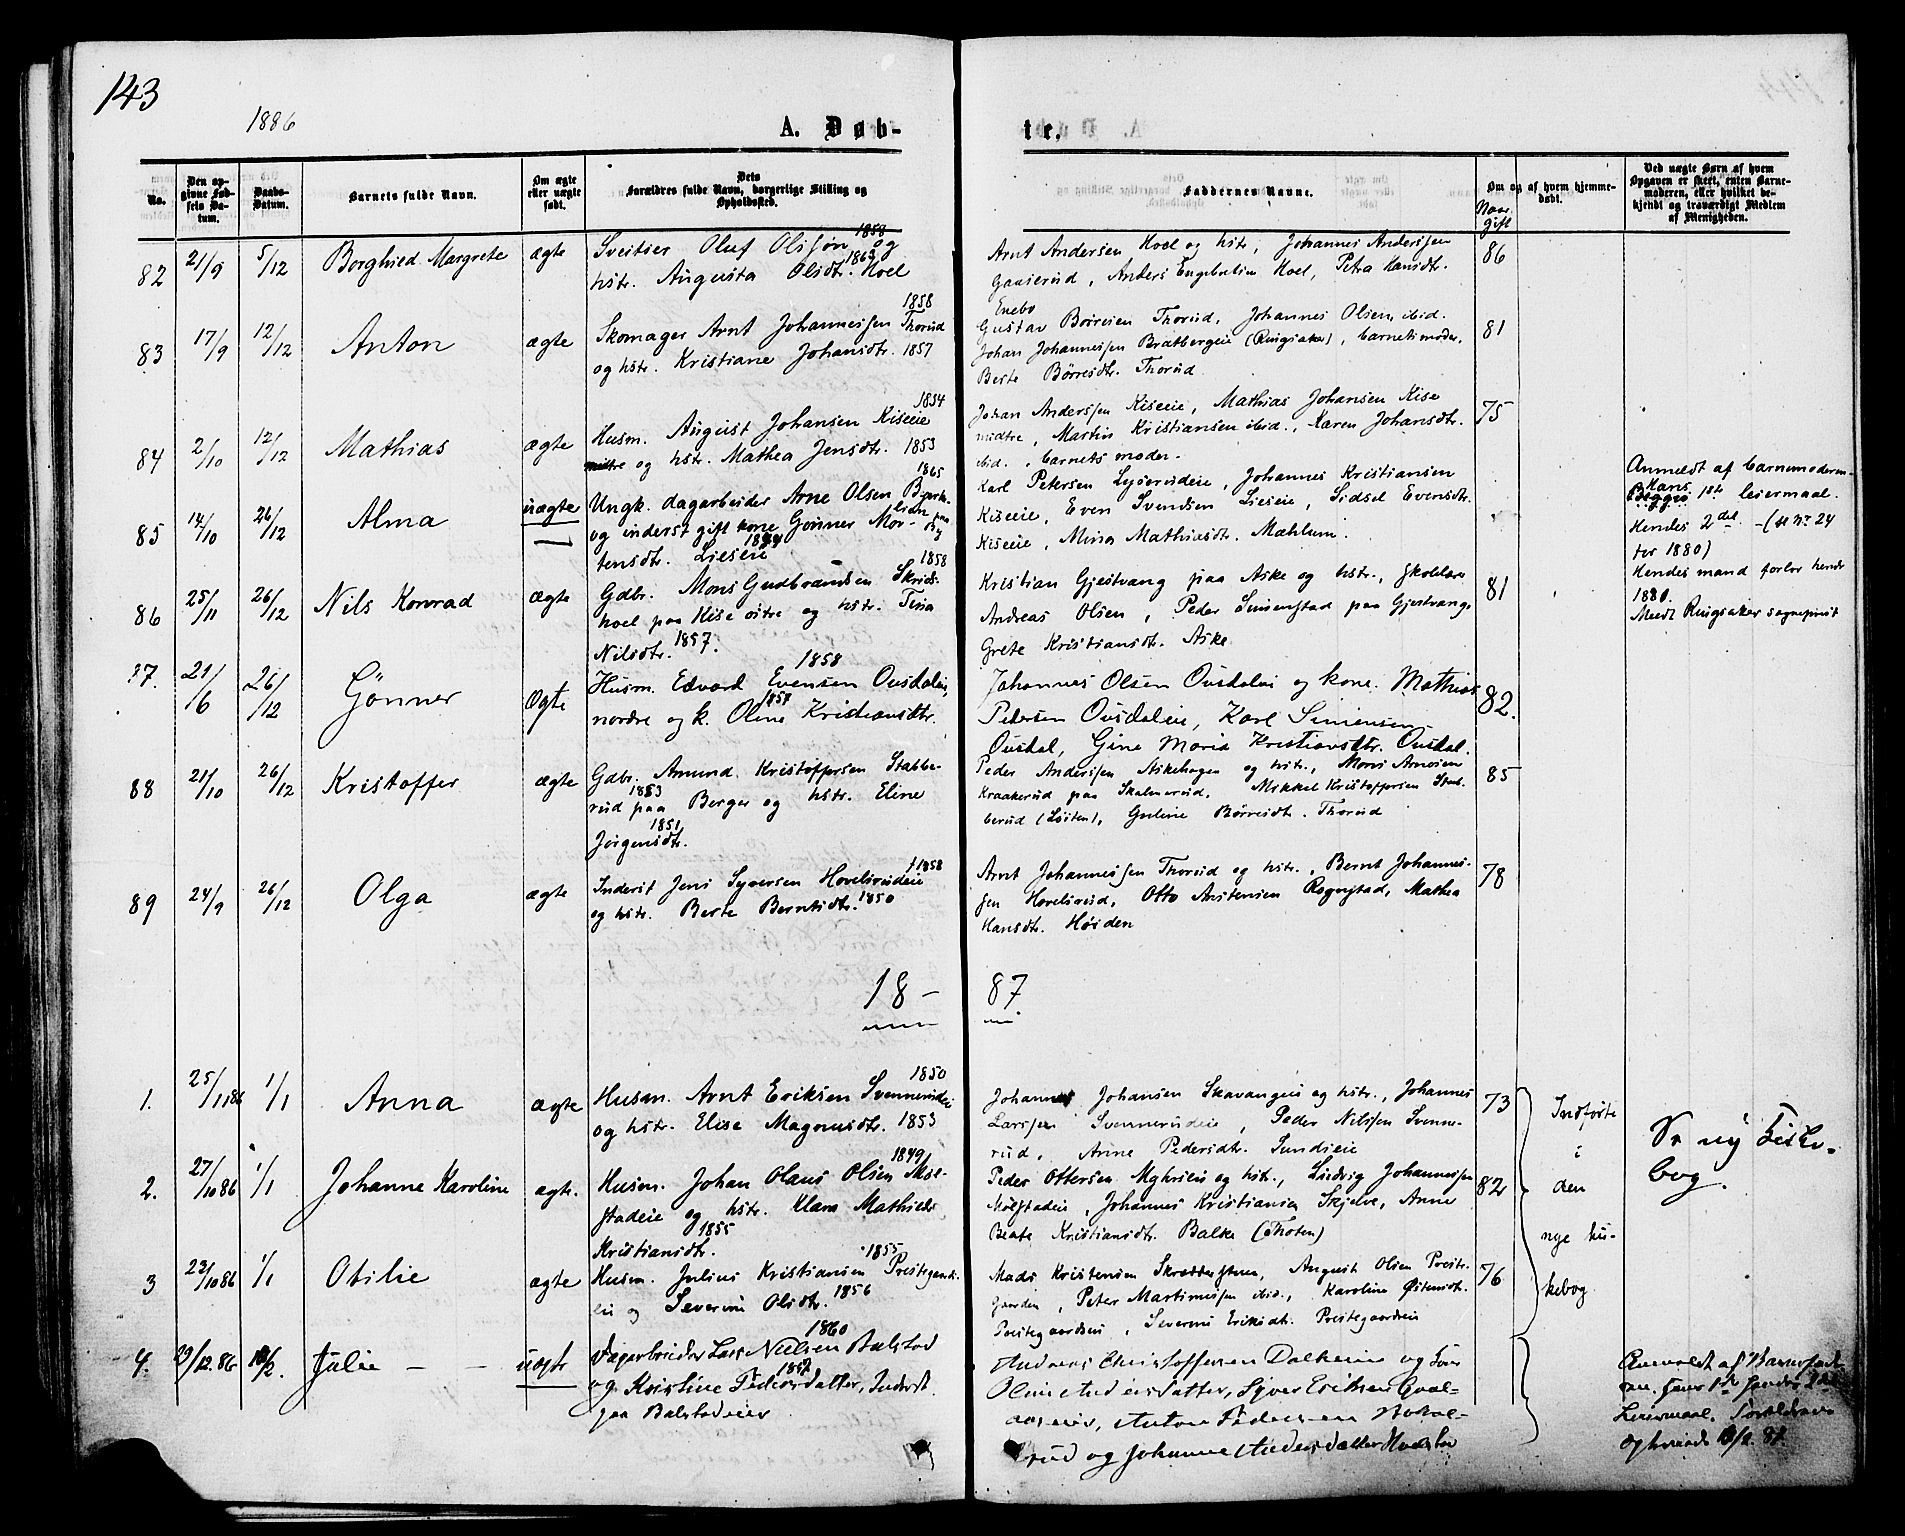 143
1886
A. Døb-
te.
No.
Den op-
givne Fød-
sels Da-
tum.
Daabs-
Datum.
Barnets fulde Navn.
Om ægte
eller uægte
født.
Dets
Forældres fulde Navn, borgerlige Stilling og
Opholdssted.
Faddernes Navne.
Om og af hvem hjemme-
døbt.
Ved uægte Børn af hvem
Opgaven er skeet, enten Barne-
moderen, eller hvilket be-
kjendt og troværdigt Medlem
af Menigheden.
82
21/9
5/12
Borghied Margrete
ægte
Sveitser Oluf Olssøn og 1858
hstr. Augusta Olsdtr. Hoel 1863
Arnt Andersen Hoel og hstr., Johannes Anderssen
Gaaserud, Anders Engebretsen Hoel, Petra Hansdtr.
Enebo
86
83
17/9
12/12
Anton
ægte
Skomager Arnt Johannessen Thorud 1858
og hstr. Kristiane Johansdtr. 1857
Gustav Børresen Thorud, Johannes Olsen ibid.
Johan Johannessen Bratbergeie (Ringsaker), barnets moder,
Berte Børresdtr. Thorud
81
84
2/10
12/12
Mathias
ægte
Husm. August Johansen Kiseeie 1854
midtre og hstr. Mathea Jensdtr. 1853
Johan Anderssen Kiseeie, Mathias Johansen Kise
midtre, Martin Kristiansen ibid., Karen Johansdtr.
ibid., barnets moder.
75
85
14/10
26/12
Alma
uægte
Ungk. dagarbeider Arne Olsen 1865
og inderst gift kone Gønner Mor-
tensdtr. Lieseie
Karl Petersen Lyserudeie, Johannes Kristiansen
Kiseeie, Even Svendsen Lieseie, Sidsel Evensdtr.
Kiseeie, Mina Mathiasdtr. Mæhlum.
Anmeldt af barnemoderen.
Hans 1ste leiermaal.
Hendes 2det - (se nr 24
for 1880)
Hendes mand forlov hende
1880.
Meedt Ringsaker sogneprest
86
25/11
26/12
Nils Konrad
ægte
Gdbr. Mons Gudbrandsen Skrids- 1858
hoel paa Kise østre og hstr. Tina
Nilsdtr. 1857.
Kristian Gjestvang paa Aske og hstr., skolelærer
Andreas Olsen, Peder Simenstad paa Gjestvang,
Grete Kristiansdtr. Aske
81
87.
21/6
26/12
Gønner
Ægte
Husm. Edvard Evensen Ousdaleie, 1858
nordre og k. Oline Kristiansdtr. 1858
Johannes Olsen Ousdaleie og kone. Mathias
Petersen Ousdaleie, Karl Simensen
Ousdal, Gine Maria Kristiansdtr. Ousdal.
82.
88
21/10
26/12
Kristoffer
ægte
Gdbr. Amund Kristoffersen Stabbe-
rud paa Berger og hstr. Eline 1853
Jørgensdtr. 1851
Peder Anderssen Askehagen og hstr., Mons Arnesen
Kraakerud paa Skalmerud, Mikkel Kristoffersen Stab-
berud (Løiten), Guline Børresdtr. Thorud
85
89
24/9
26/12
Olga
ægte
Inderst Jens Syversen Hovelsrudeie 1858
og hstr. Berte Berntsdtr. 1850
Arnt Johannessen Thorud og hstr., Bernt Johannes-
sen Hovelsrud, Otto Antensen Rognstad, Mathea
Hansdtr. Høiden
78
18- 87
1.
25/11 86
1/1
Anna
ægte
Husm. Arnt Eriksen Svennerudeie 1850
og hstr. Elise Magnusdtr. 1853
Johannes Johansen Skavangeie og hstr., Johannes
Larssen Svennerudeie, Peder Nilssen Svenne-
rud, Anne Pedersdtr. Sundeeie
73
2.
27/10 86
1/1
Johanne Karoline
ægte.
Husm. Johan Olaus Olsen Møl- 1849
stadeie og hstr. Klara Mathilde
Kristiansdtr. 1855
Peder Ottersen og hstr., Ludvig Johannessen
Mølstadeie, Johannes Kristiansen Skjelve, Anne
Beate Kristiansdtr. Balke (Thoten)
82
Indførte
i
den
nye kir-
kebog
Se ny Kirke-
bog.
3
23/10 86
1/1
Otilie
ægte
Husm. Julius Kristiansen Prestegaards- 1855
eie og Severine Olsdtr. 1856
Mads Kristensen Skrædderstuen, August Olsen Preste-
gaarden, Peter Martinussen ibid., Karoline Østensdtr.
Prestegaardseie, Severine Eriksdtr. Prestegaardseie
76
4.
29/12. 86
Julie
uægte
Dagarbeider Lars Nielsen Balstad 1860
og Kristine Pedersdatter, Inderst 1857
paa Balstadeie
Andreas Christoffersen Dalseie og
Oline Andersdatter, Syver Eriksen Qval-
Anton Pedersen
rud og Johanne Andersdatter
Anmeldt af Barnefade-
ren. Hans 1ste hendes 2det
Leiermaal. Forældrene